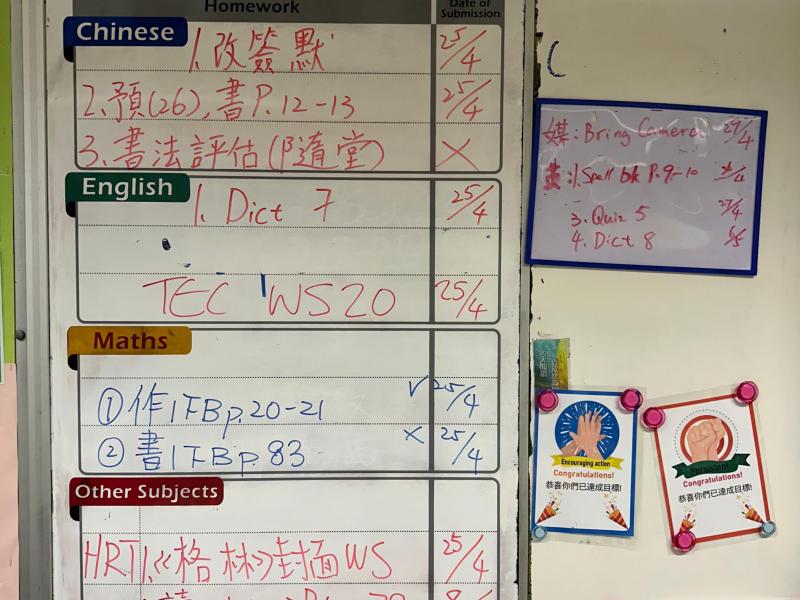 Homework
Date of Submission
Chinese
1. 改簽默 25/4
2. 預(26), 書P. 12-13 25/4
3. 書法評估(隨堂) ×
English
1. Dict 7 25/4
TEC WS20 25/4
Maths
① 作1FBp. 20-21 ✓ 25/4
② 書1FBp. 83 × 25/4
Other Subjects
HRT 1.《格林》封面WS 25/4
媒: Bring Camera 29/4
1. Spell bk P. 9-10
3. Quiz 5 29/4
4. Dict 8
Encouraging action
Congratulations!
恭喜你們已達成目標!
Persistent
Congratulations!
恭喜你們已達成目標!